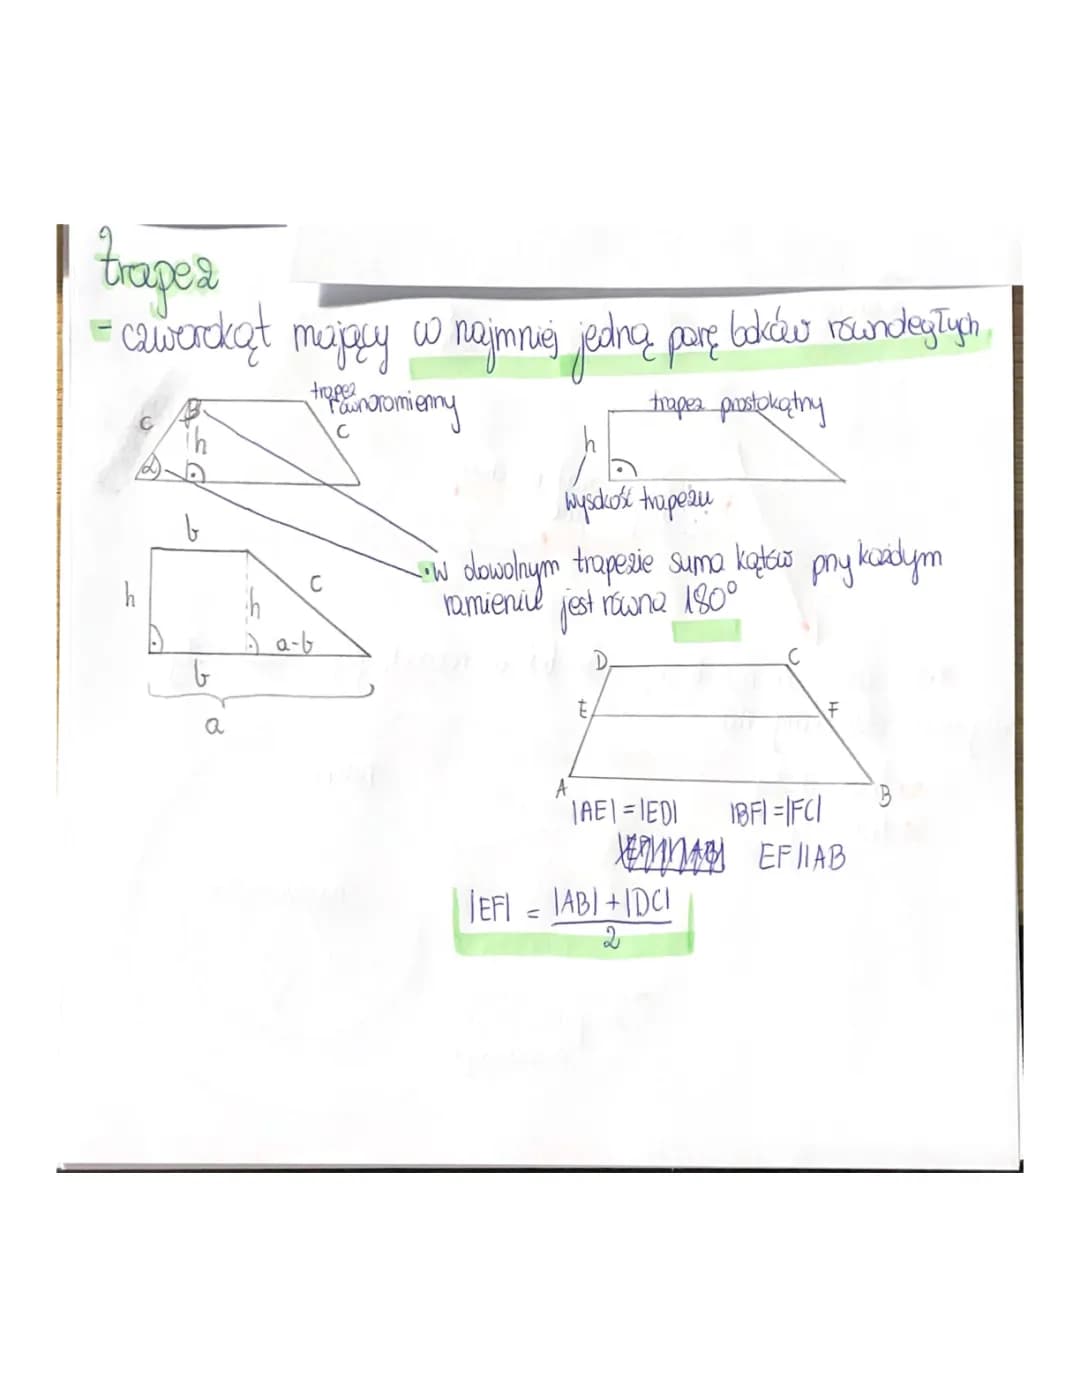 trapez
- czworokąt mający w najmniej jedną parę boków równoległych
trapez
równoramienny
c
β
h
c
α
trapez prostokątny
h
wysokość trapezu
b
h
h
c
a-b
b
a
• W dowolnym trapezie suma kątów przy każdym
ramieniu jest równa 180°
D
C
E
F
A
B
|AE| = |ED| |BF| = |FC|
EF || AB
|EF| = |AB| + |DC|
2